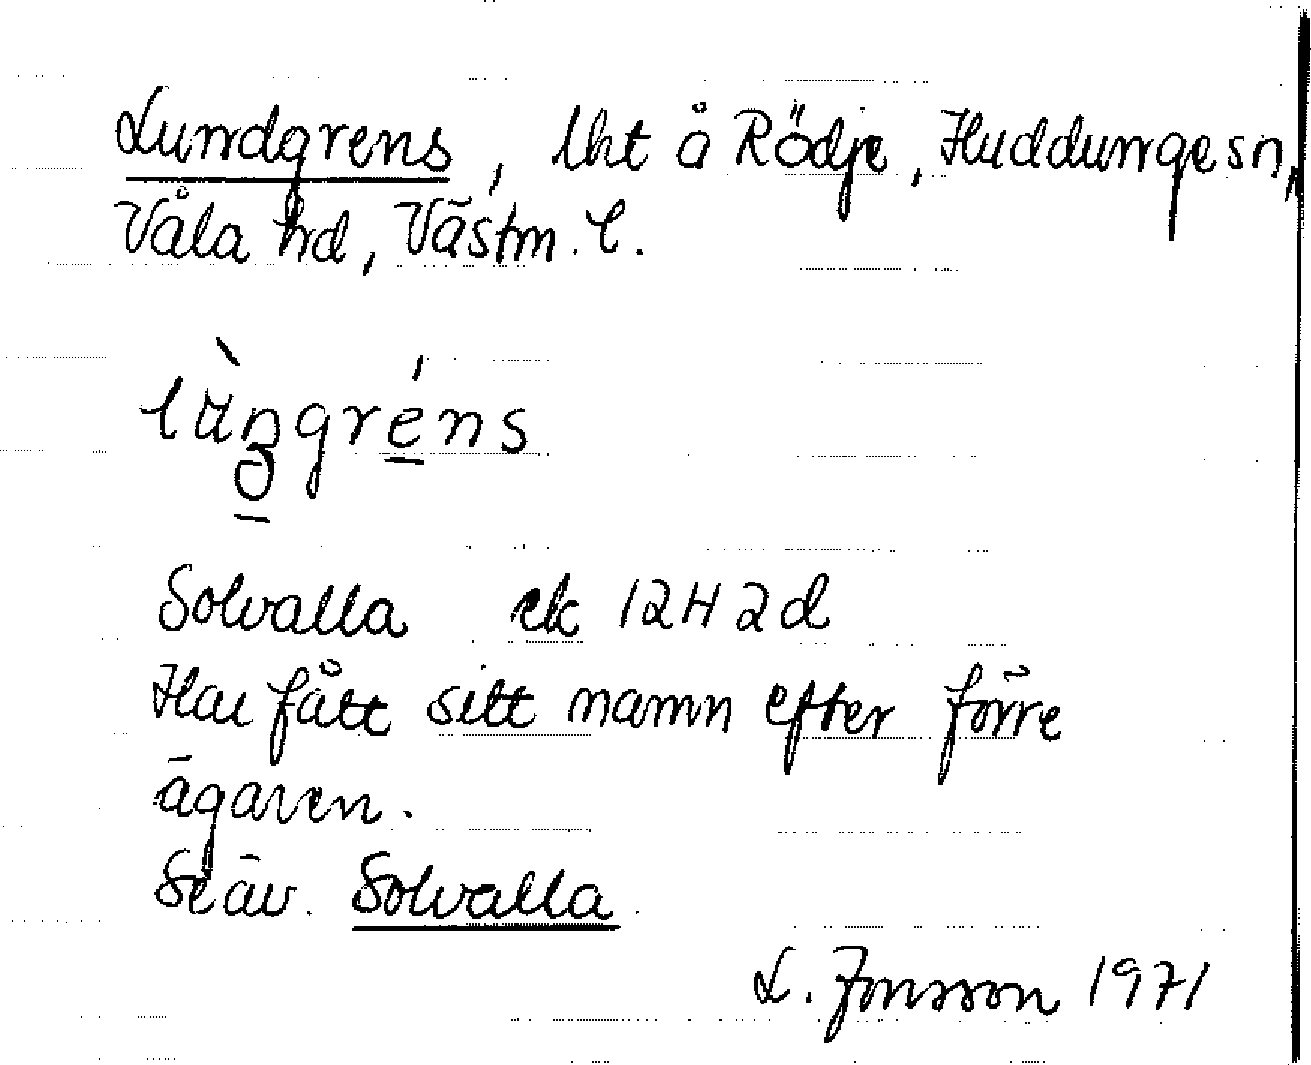 Lundgrens, lht å Rödje, Huddunge sn,
Våla hd, Västm. l.
Solvalla ek 12H2d
Har fått sitt namn efter förre
ägaren.
Se äv. Solvalla
L. Jonsson 1971